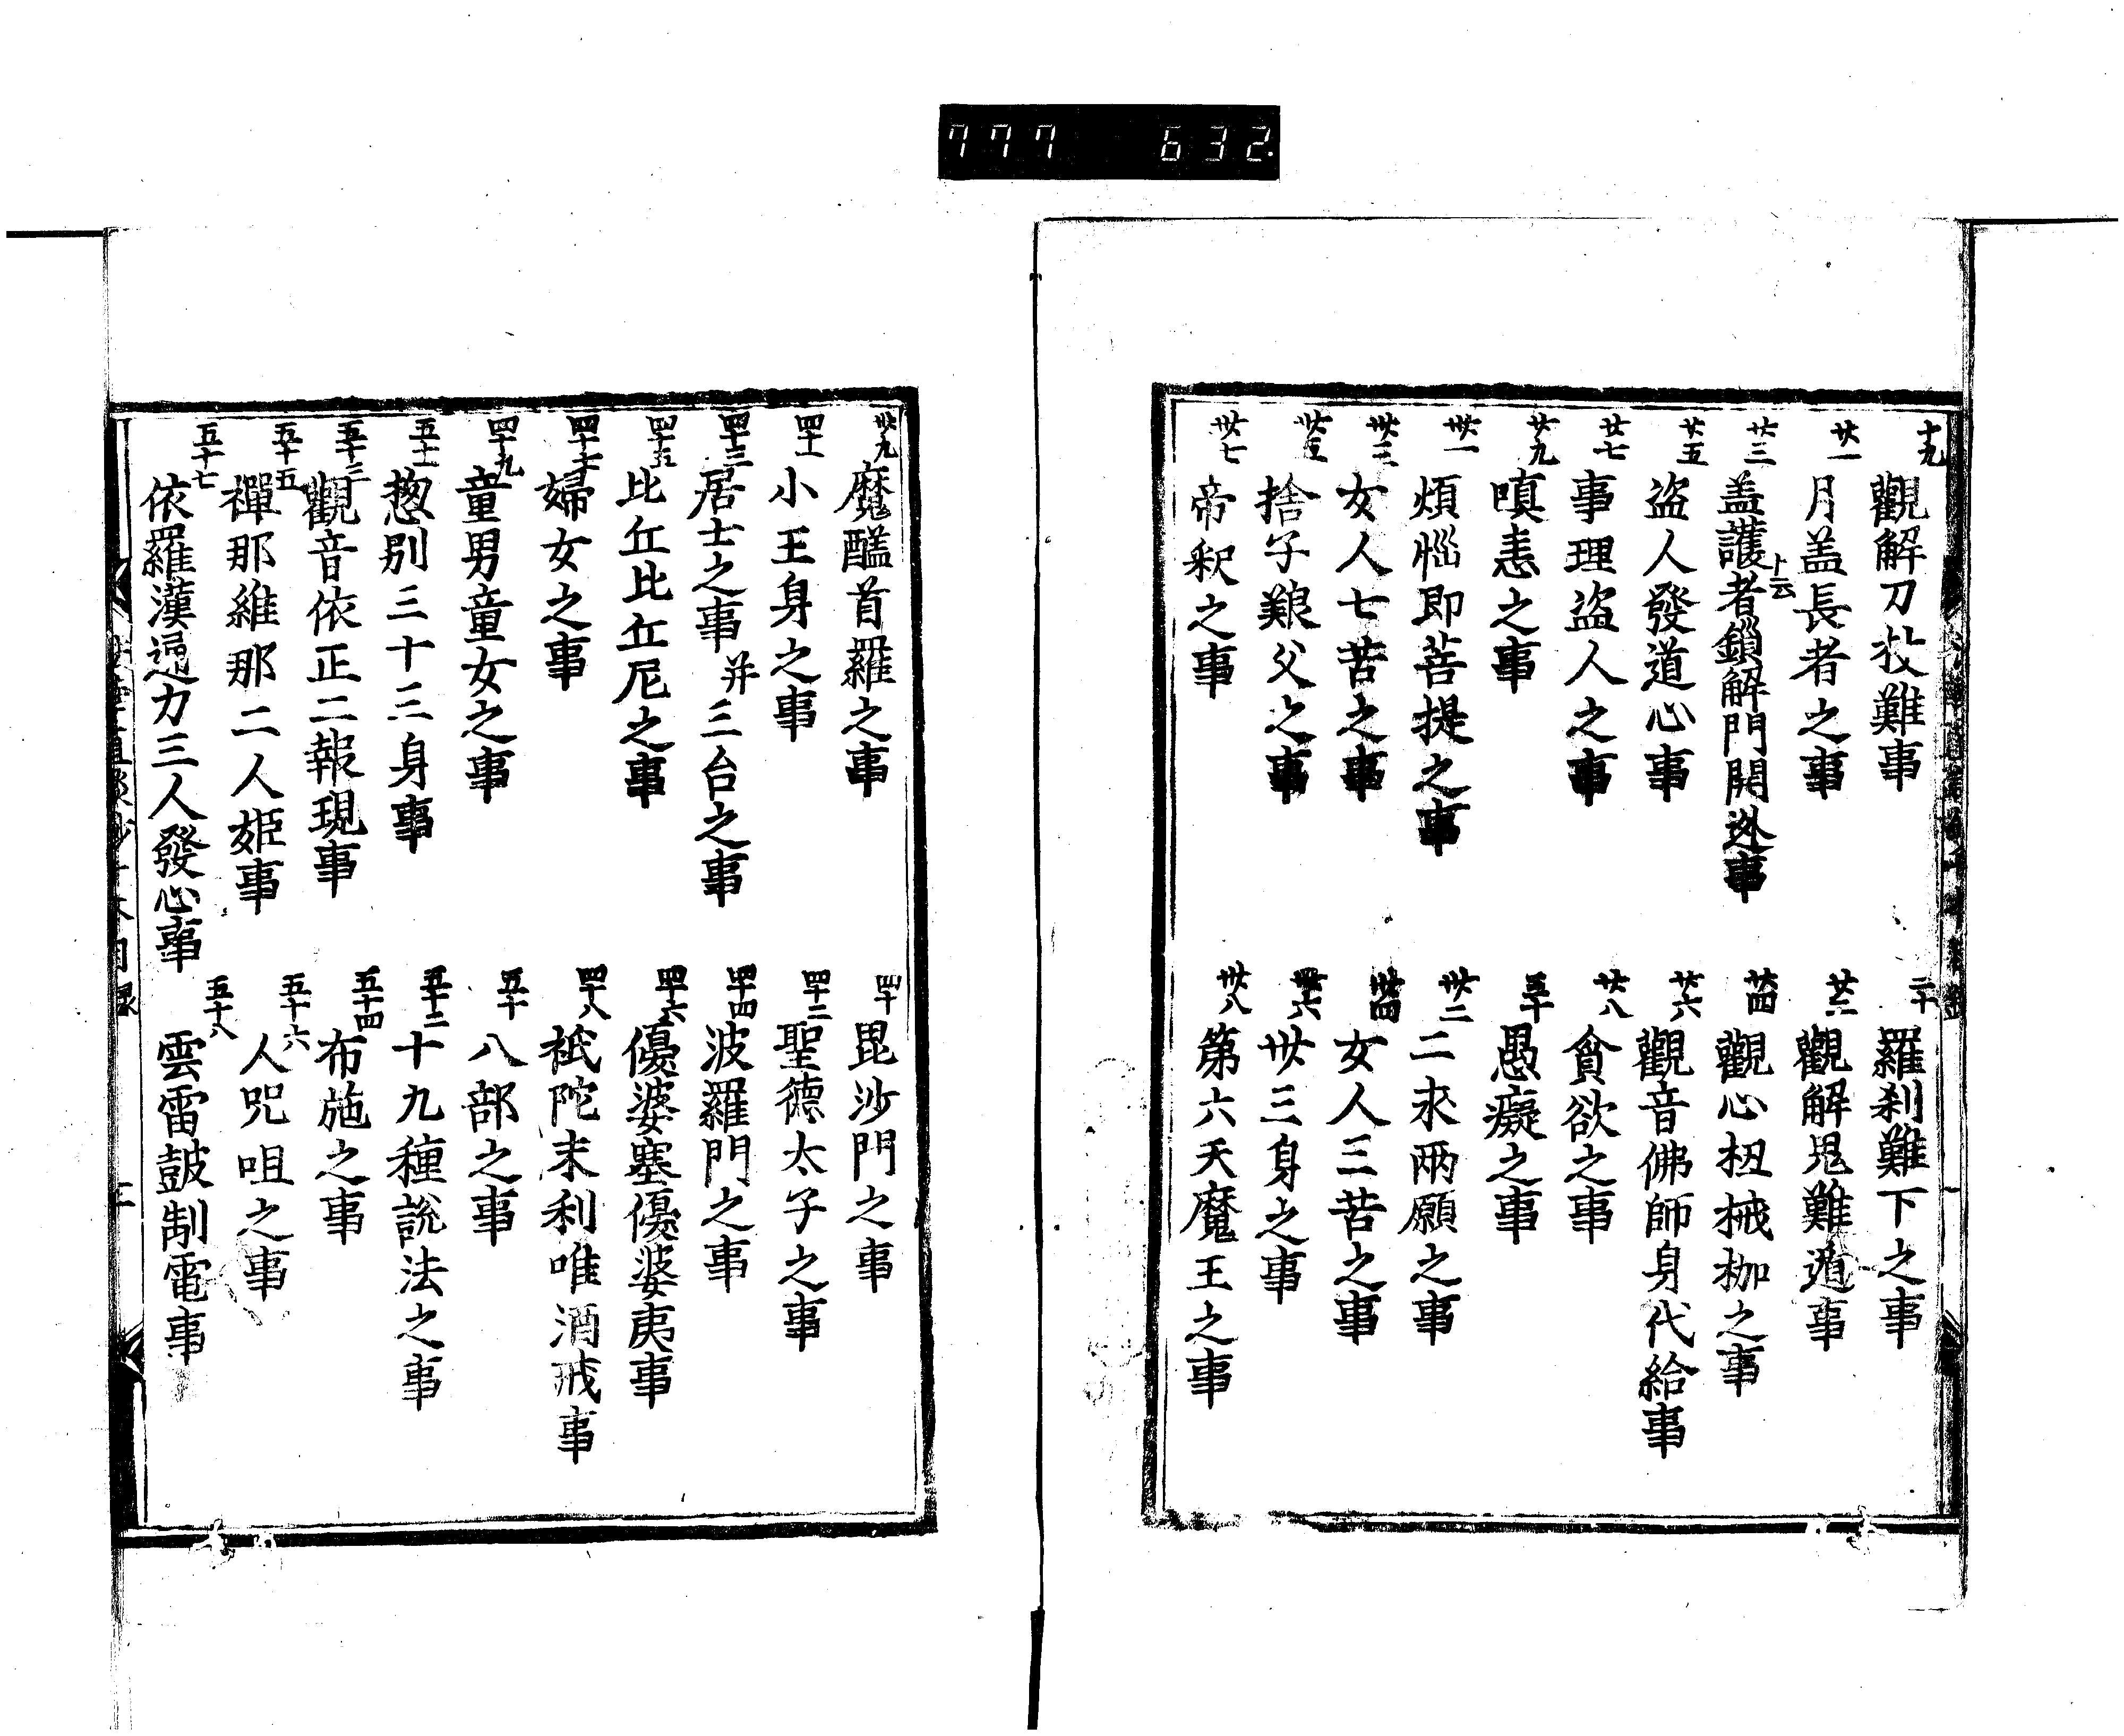 777 632
十九 觀解刀杖難事
二十 羅刹難下之事
廿一 月盖長者之事
廿二 觀解鬼難遁事
廿三 盖護者鎻解門開迯事
ト云
廿四 觀心杻械枷之事
廿五 盗人發道心事
廿六 觀音佛師身代給事
廿七 事理盗人之事
廿八 貪欲之事
廿九 嗔恚之事
三十 愚癡之事
卅一 煩惱即菩提之事
卅二 二求兩願之事
卅三 女人七苦之事
卅四 女人三苦之事
卅五 捨子艱父之事
卅六 卅三身之事
卅七 帝釈之事
卅八 第六天魔王之事
卅九 魔醯首羅之事
四十 毘沙門之事
四十一 小王身之事
四十二 聖德太子之事
四十三 居士之事并三台之事
四十四 波羅門之事
四十五 比丘比丘尼之事
四十六 優婆塞優婆夷事
四十七 婦女之事
四十八 祇陀末利唯酒戒事
四十九 童男童女之事
五十 八部之事
五十一 惣別三十三身事
五十二 十九種說法之事
五十三 觀音依正二報現事
五十四 布施之事
五十五 禪那維那二人姫事
五十六 人咒咀之事
五十七 依羅漢通力三人發心事
五十八 雲雷鼓掣電事